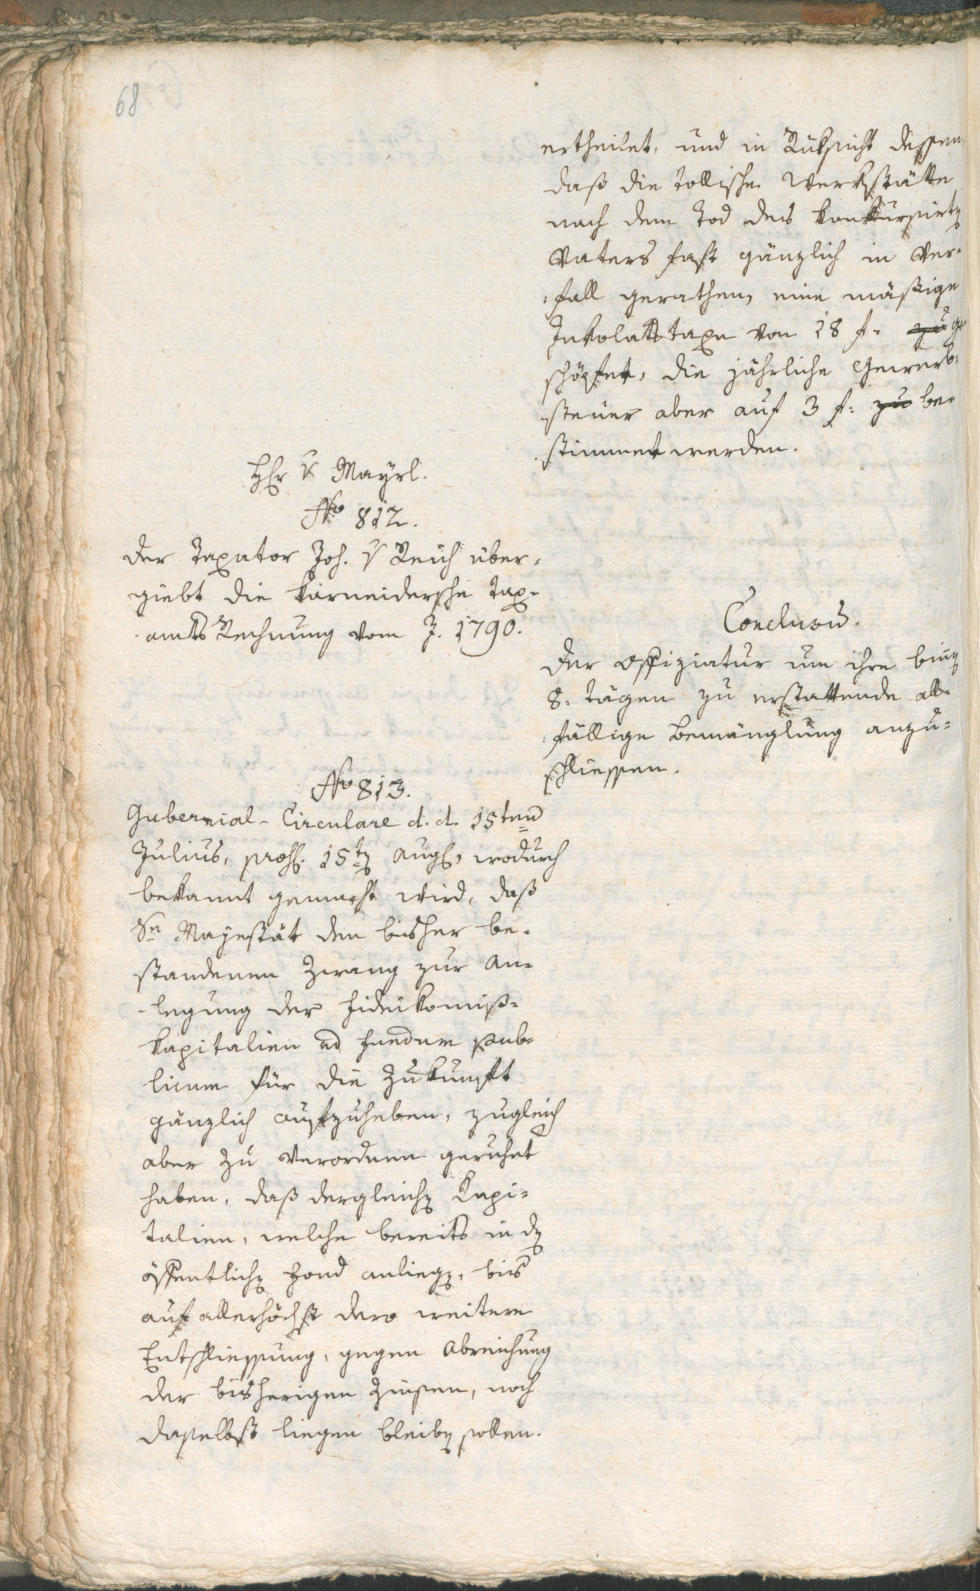 68
ertheilet, und in Rüksicht dessen
daß die tollische Werkstätte
nach dem Tod des
Vaters fast gänzlich in Ver-
fall gerathen, eine mäßige
Inkolatstaxe von 18 f. zu ge
schöpfet, die jährliche Gewerb-
steuer aber auf 3 f: zu be-
stimmet werden.
Hr v Mayrl.
No 812.
Der Taxator Joh. v Reich über-
giebt die karneidersche Tax-
amts Rechnung vom J. 1790.
Conclusũ.
Der Offiziatur um ihre binn
8. tägen zu erstattende all-
fällige Bemänglung anzu-
schliessen.
No 813.
Gubernial-Circulare d. d. 15ten
Julius, 15tn Aug, wodurch
bekannt gemacht wird, daß
Se Majestät den bisher be-
standenen Zwang zur An-
legung der Fideikomiß-
kapitalien ad fundum pub-
licum für die Zukunft
gänzlich aufzuheben, zugleich
aber zu verordnen geruhet
haben, daß dergleichn Kapi-
talien, welche bereits in dn
öffentlichn Fond anliegn, bis
auf allerhöchst dero weitere
Entschliessung, gegen Abreichung
der bisherigen Zinsen, noch
daselbst liegen bleibn sollen.